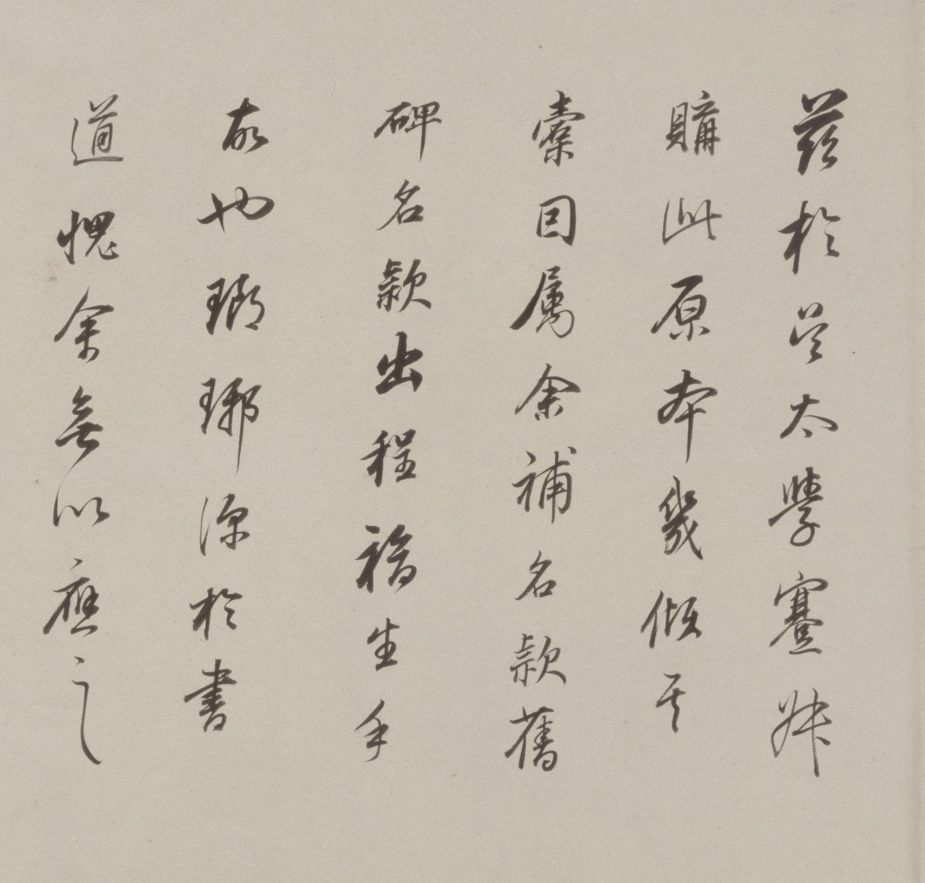 茲於吳太學蹇叔
購此原本幾傾其
橐因属余補名款舊
碑名款出程生手
故也瑯琊深於書
道愧余無以應之